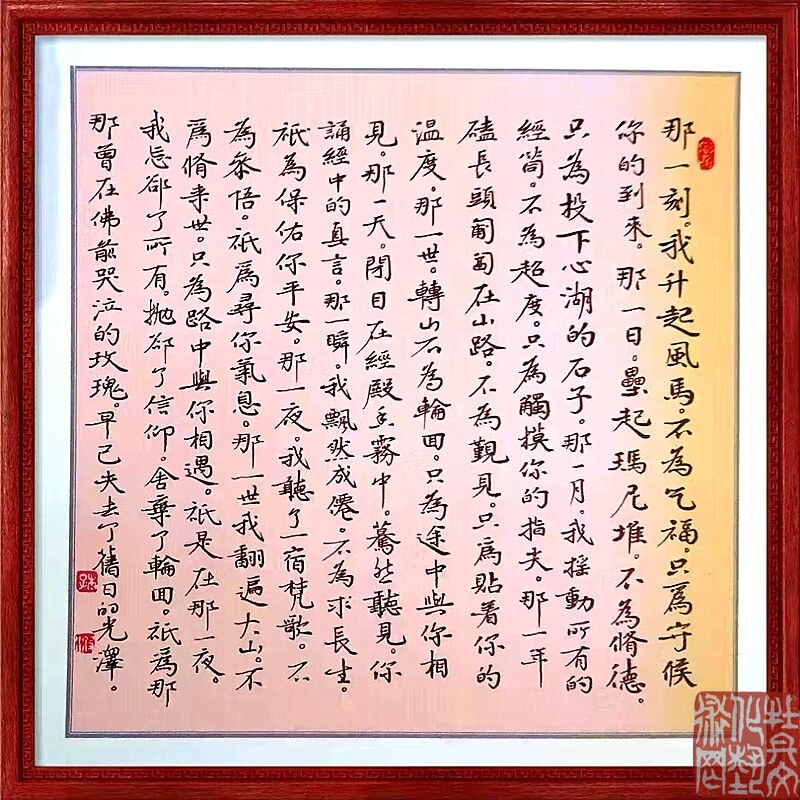 那一刻。我升起風馬。不為乞福。只為守候
你的到來。那一日。壘起瑪尼堆。不為脩德。
只為投下心湖的石子。那一月。我搖動所有的
經筒。不為超度。只為觸摸你的指尖。那一年
磕長頭匍匐在山路。不為覲見。只為貼着你的
溫度。那一世。轉山不為輪回。只為途中與你相
見。那一天。閉目在經殿香霧中。驀然聽見。你
誦經中的真言。那一瞬。我飄然成僊。不為求長生。
祇為保佑你平安。那一夜。我聽了一宿梵歌。不
為叅悟。祇為尋你氣息。那一世我翻遍大山。不
為脩來世。只為路中與你相遇。祇是在那一夜。
我忘卻了所有。拋卻了信仰。舍棄了輪回。祇為那
那曾在佛前哭泣的玫瑰。早已失去了舊日的光澤。